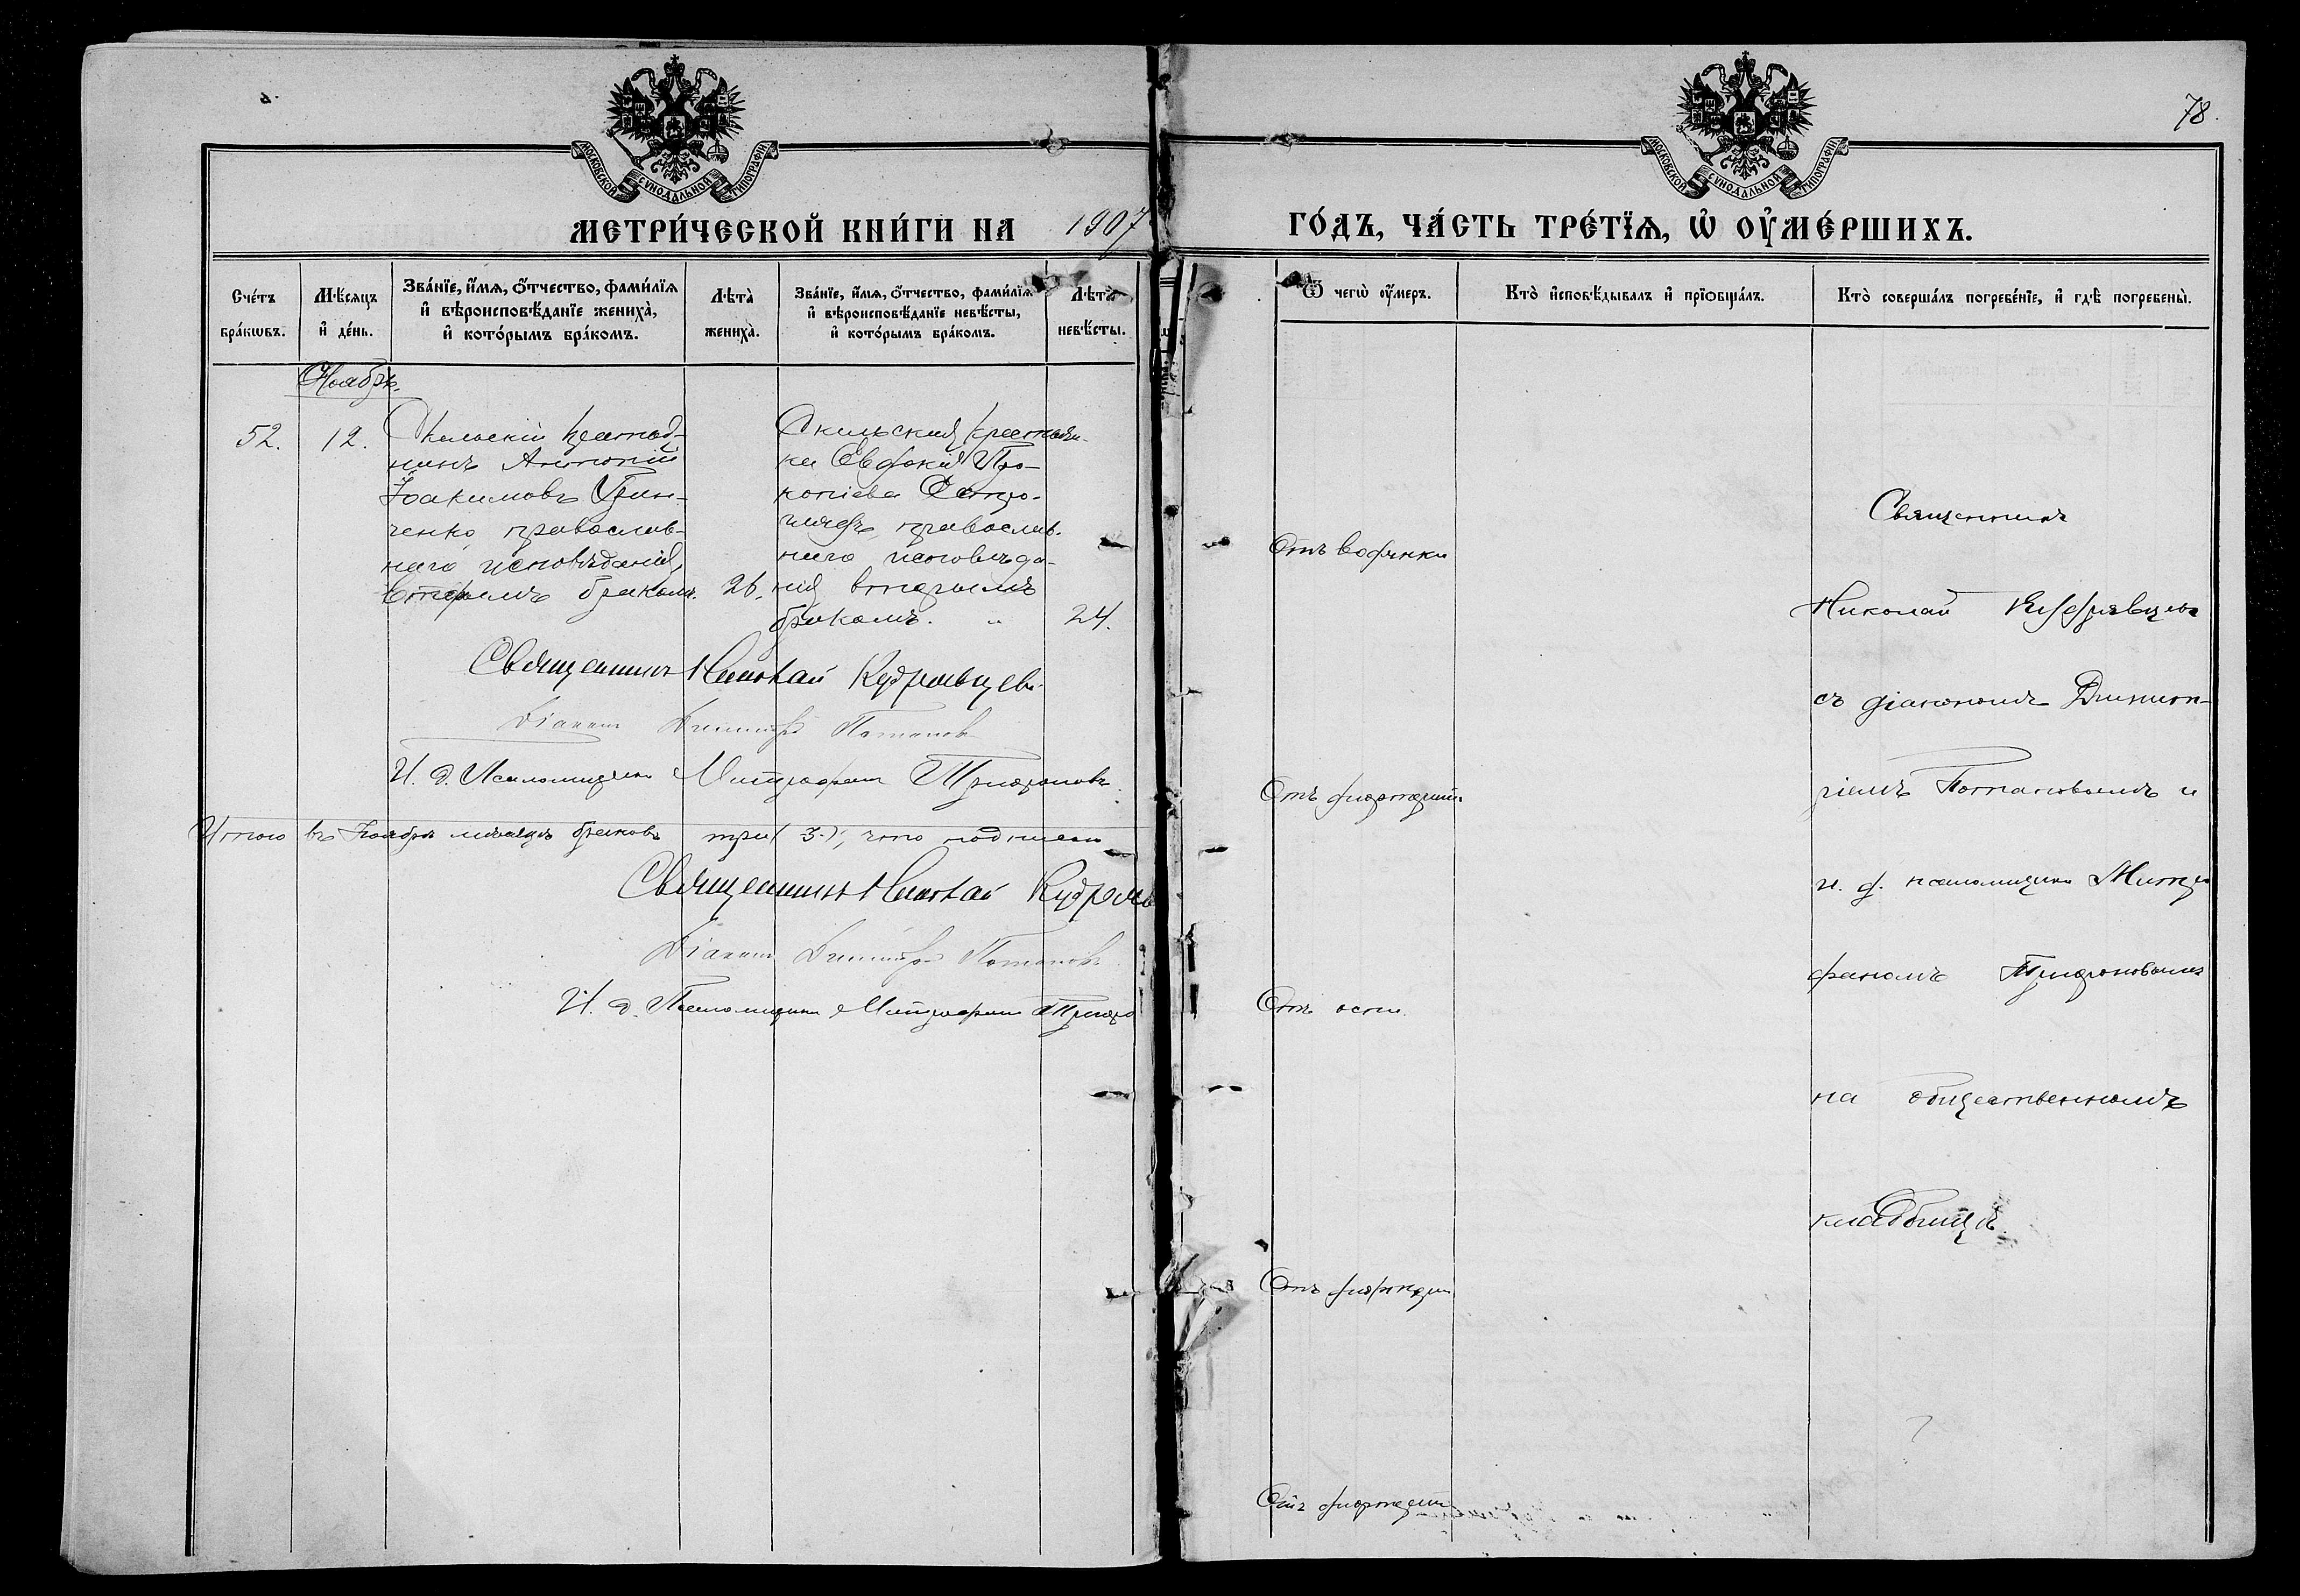 78.
МОСКОВСКОЙ СѴНОДАЛЬНОЙ ТИПОГРАФІИ
МЕТРИ́ЧЕСКОЙ КНИ́ГИ НА 1907
Сче́тъ бра́кѡвъ.
Мѣ́сяцъ и҆ де́нь.
Зва́нїе, и҆́мя, ѻ҆́тчество, фами́лїя
и҆ вѣроисповѣ́данїе жениха̀,
и҆ кото́рымъ бра́комъ.
Лѣта̀ жениха̀.
Зва́нїе, и҆́мя, ѻ҆́тчество, фами́лїя
и҆ вѣроисповѣ́данїе невѣ́сты,
и҆ кото́рымъ бра́комъ.
Лѣта̀ невѣ́сты.
Ноябрь.
52.
12.
крестья-
нинъ Антоній
Іоакимовъ Грин-
ченко православ-
наго исповѣданія,
вторымъ бракомъ.
26.
крестьян-
ка Евдокія Про-
копіева
православ-
наго исповѣда-
нія вторымъ
бракомъ.
24.
Священникъ Николай Кудрявцевъ.
Діаконъ Димитрій Потаповъ
И. д. Псаломщика Митрофанъ Трифоновъ.
Итого въ Ноябрѣ мѣсяцѣ браковъ три (3.), что подписомъ
Священникъ Николай
Діаконъ Димитрій Потаповъ.
И. д. Псаломщика Митрофанъ
МОСКОВСКОЙ СѴНОДАЛЬНОЙ ТИПОГРАФІИ
ГО́ДЪ, ЧА́СТЬ ТРЕ́ТЇѦ, Ѡ҆ ОУ҆МЕ́РШИХЪ.
Ѿ чегѡ̀ оу҆́меръ.
Кто̀ и҆сповѣ́дывалъ и҆ прїѡбща́лъ.
Кто̀ соверша́лъ погребе́нїе, и҆ гдѣ̀ погребены̀.
Отъ водянки
Отъ дифтеріи.
Отъ оспы.
Отъ дифтеріи
Отъ дифтеріи
Священникъ
Николай Кудрявцевъ
съ діакономъ Димит-
ріемъ Потаповымъ и
и. д. псаломщика Митро
фаномъ Трифоновымъ
на общественномъ
кладбищѣ.